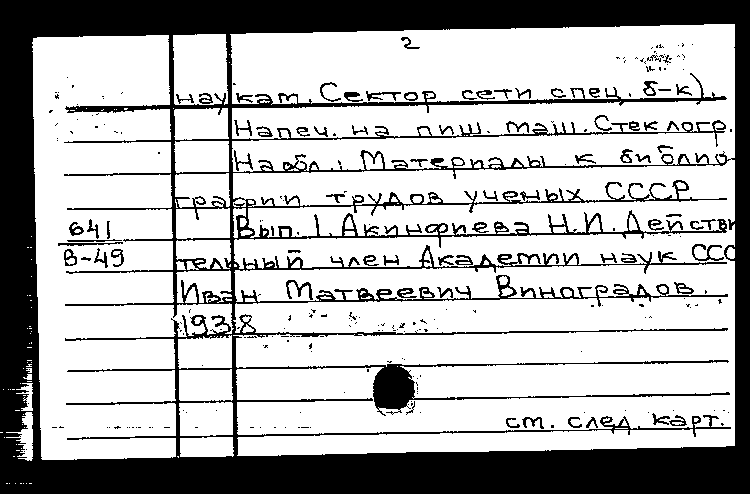 2
наукам. Сектор сети спец. б-к).
Напеч. на пиш. маш. Стеклогр.
На обл.: Материалы к библио-
графии трудов ученых СССР.
641
В-49
Вып. 1. Акинфиева Н.И. Действи
тельный член Академии наук СССР
Иван Матвеевич Виноградов.
1938
см. след. карт.